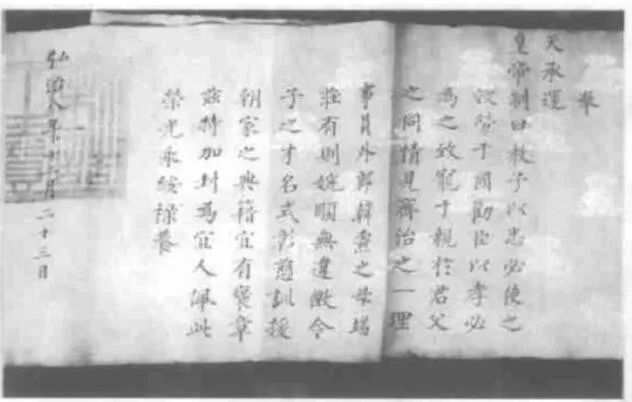 奉
天承運
皇帝制曰教子以忠必使之
效勞于國勸臣以孝必
為之致寵于親於君父
之同情見齊治之一理
事員外郎韓之母端
莊有則婉順無違徵令
子之才名式彰慈訓援
朝家之典籍宜有褒章
茲特加封為宜人佩此
榮光永綏祿養
弘治年十月二十三日